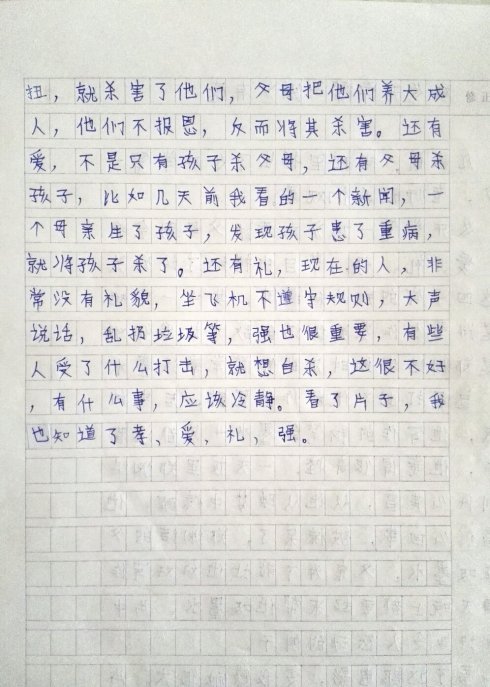 扭，就杀害了他们，父母把他们养大成
人，他们不报恩，反而将其杀害。还有
爱，不是只有孩子杀父母，还有父母杀
孩子，比如几天前我看的一个新闻，一
个母亲生了孩子，发现孩子患了重病，
就将孩子杀了。还有礼，现在的人，非
常没有礼貌，坐飞机不遵守规则，大声
说话，乱扔垃圾等，强也很重要，有些
人受了什么打击，就想自杀，这很不好
，有什么事，应该冷静。看了片子，我
也知道了孝、爱、礼、强。